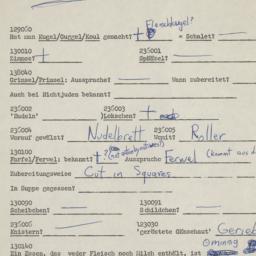 Fleischkugel?
129060
Hat man Kugel/Guggel/Koul gemacht? + = Schalet?
130010 236001
Zimmes? + Spätzel?
138040
Grinsel/Primsel: Aussprache? Wann zubereitet?
Auch bei Nichtjuden bekannt?
236002 236003
'Nudeln' )Lokschen? +
236004 236005
Worauf gewälzt? Nudelbrett Womit? Roller
130100
Farfel/Ferwel: bekannt? +? Aussprache Ferwel (kommt aus d
Zubereitungsweise Cut in Squares
In Suppe gegessen?
130090 130091
Scheibchen? Schildchen?
236005 123030
Knistern? 'gerötete Gänsehaut' Gerieb
130140
Ein Essen, das weder Fleisch noch Milch enthält, ist